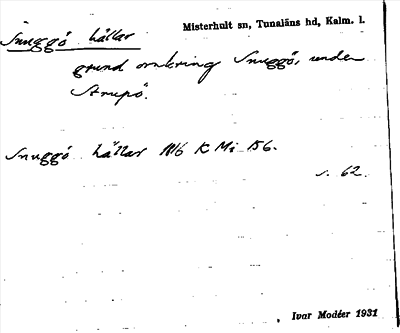 Snuggö hällar
Misterhult sn, Tunaläns hd, Kalm. l.
grund omkring Snuggö, under
Strupö.
Snuggö hällar 1816 K Mi 156.
s. 62.
Ivar Modéer 1931